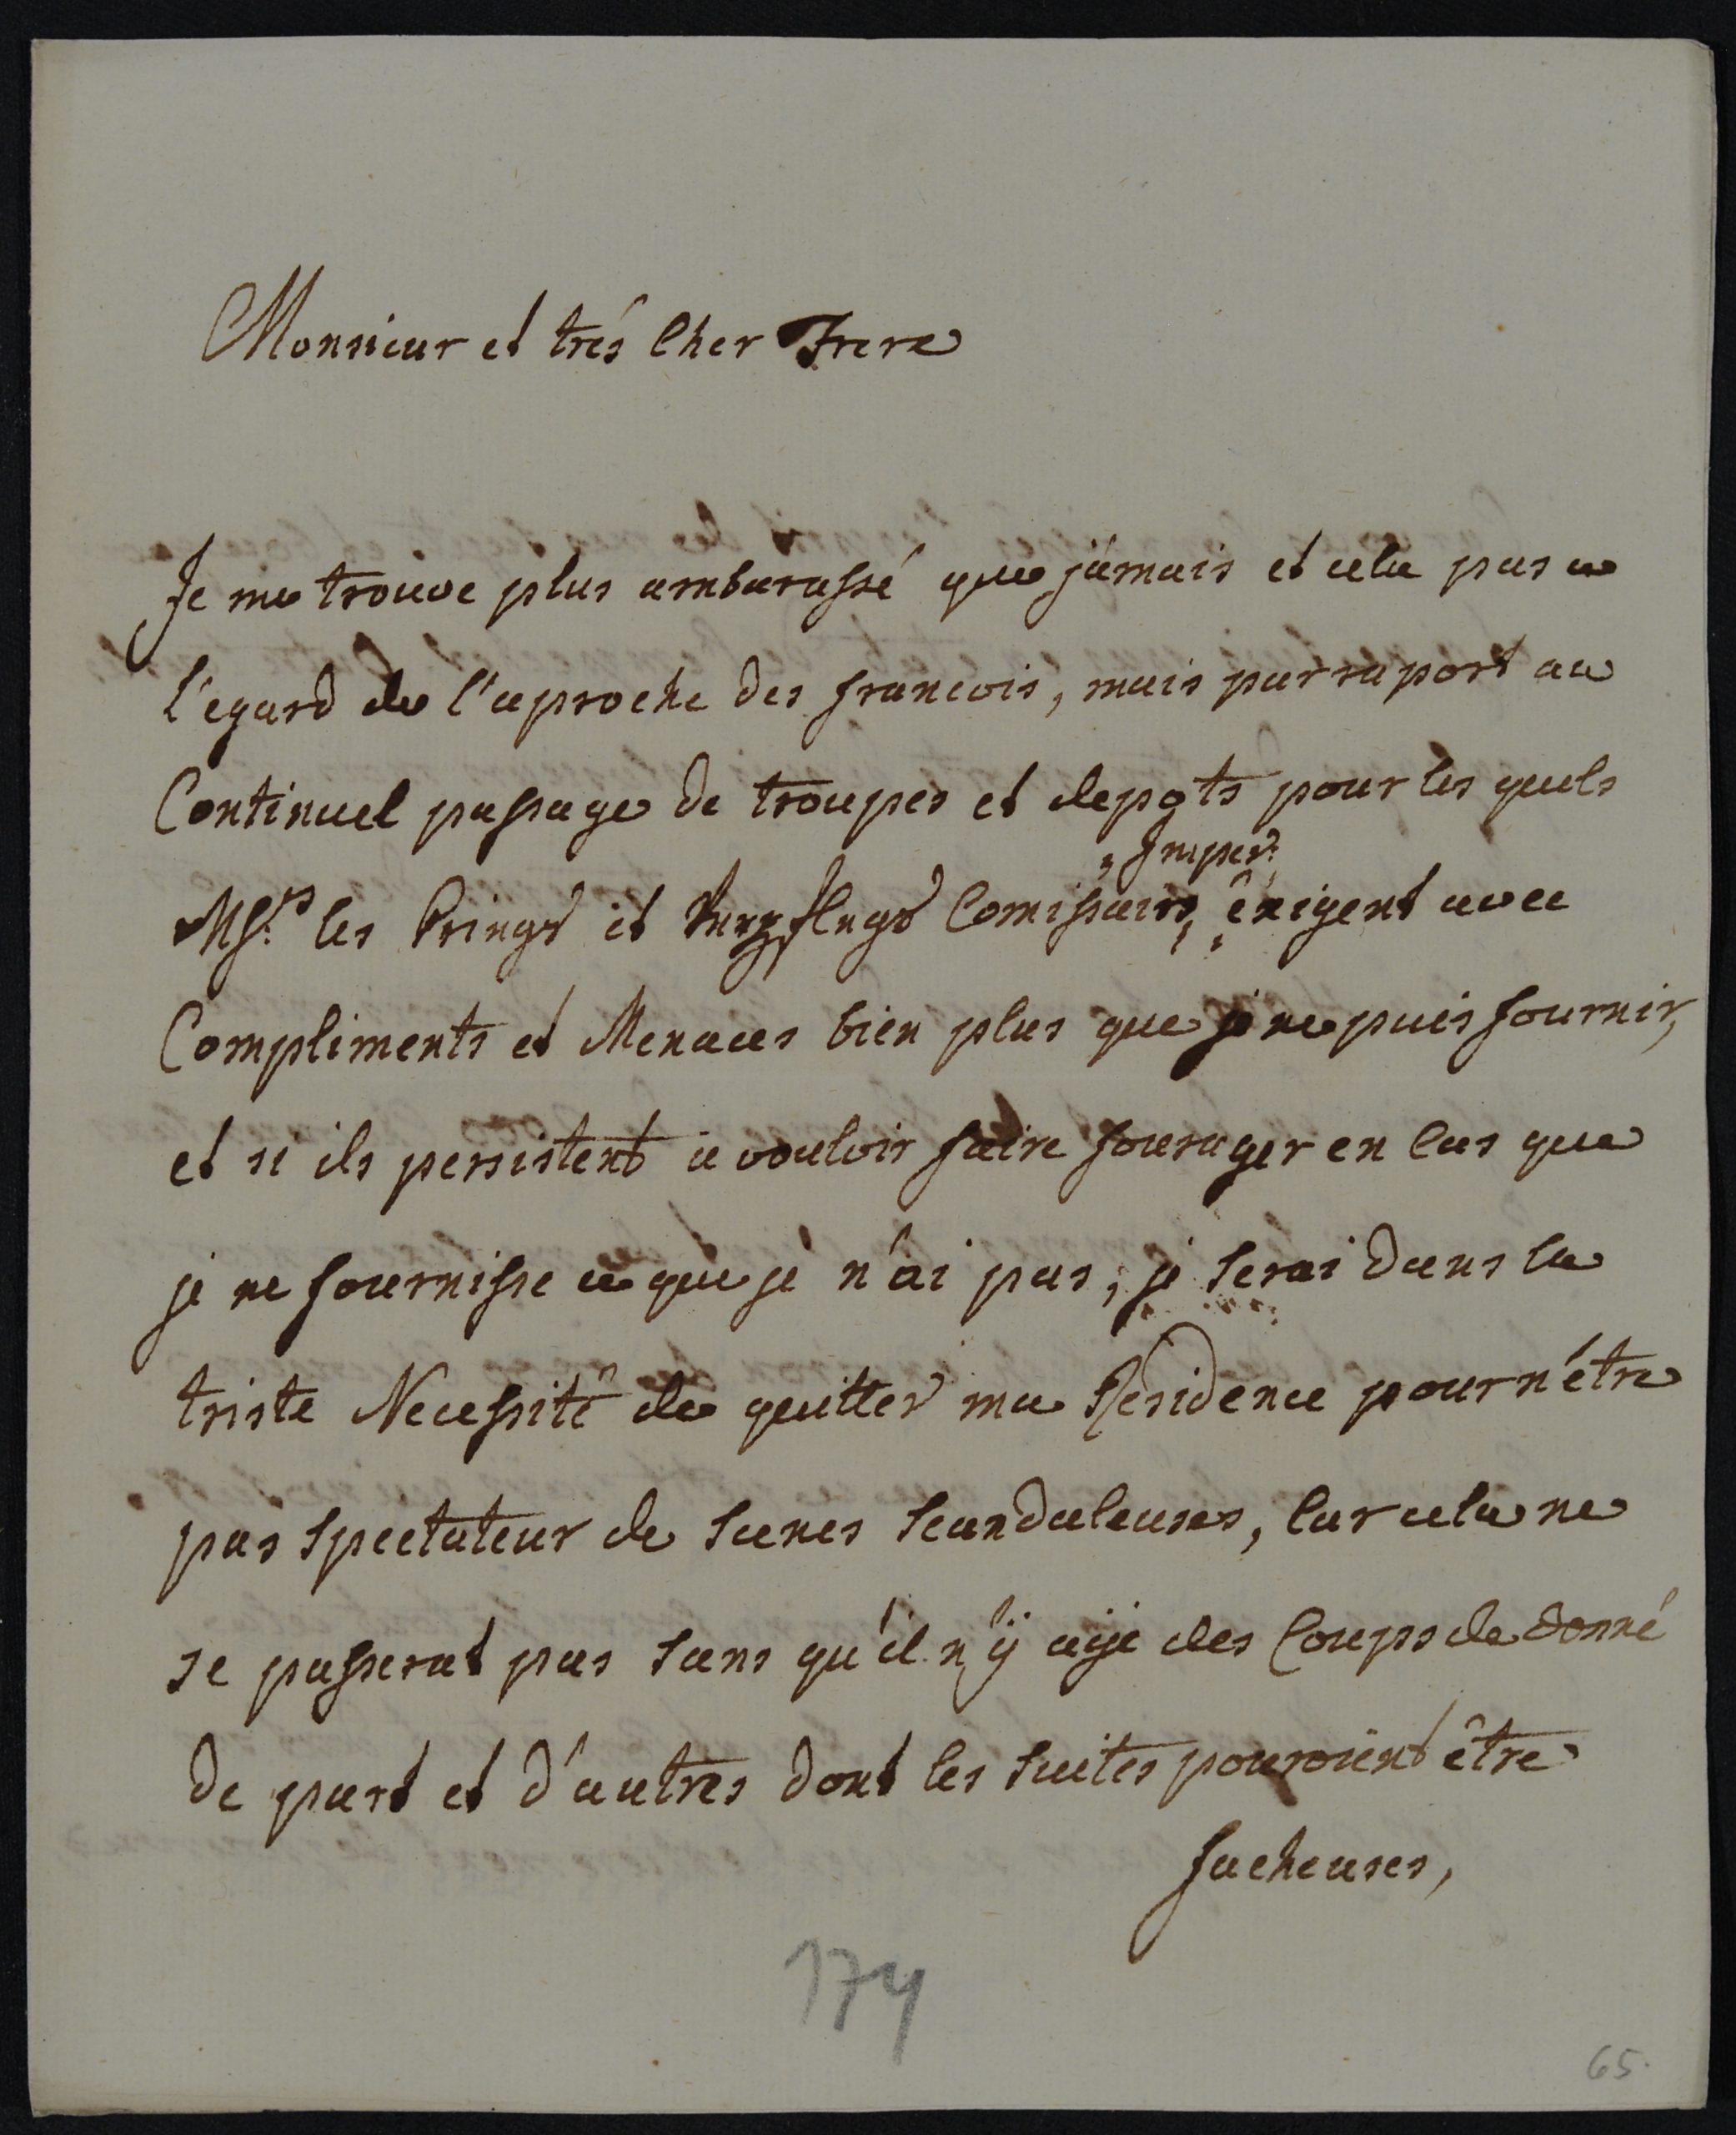 Monsieur et trés Cher Frere
Je me trouve plus ambarassé que jámais et cela pas a
l'egard de l'aproche des francois, mais parraport au
Continuel passage de troupes et depots pour les quels
Imper:
Msrs les Krings et Verpflegs Comissairs, éxigent avec
Compliments et Menaces bien plus que je ne puis fournir,
et si ils persistent a vouloir faire fourager en Cas que
je ne fournisse ce que je n'ai pas, je serai dans la
triste Necessité de quitter ma Residence pour n'étre
pas Spectateur de Scenes Scandaleuses, Car cela ne
se passerat pas sans qu'il n'ÿ aÿe des Coups de donné
de part et d'autres dont les Suites pouroient être
facheuses,
174
65.